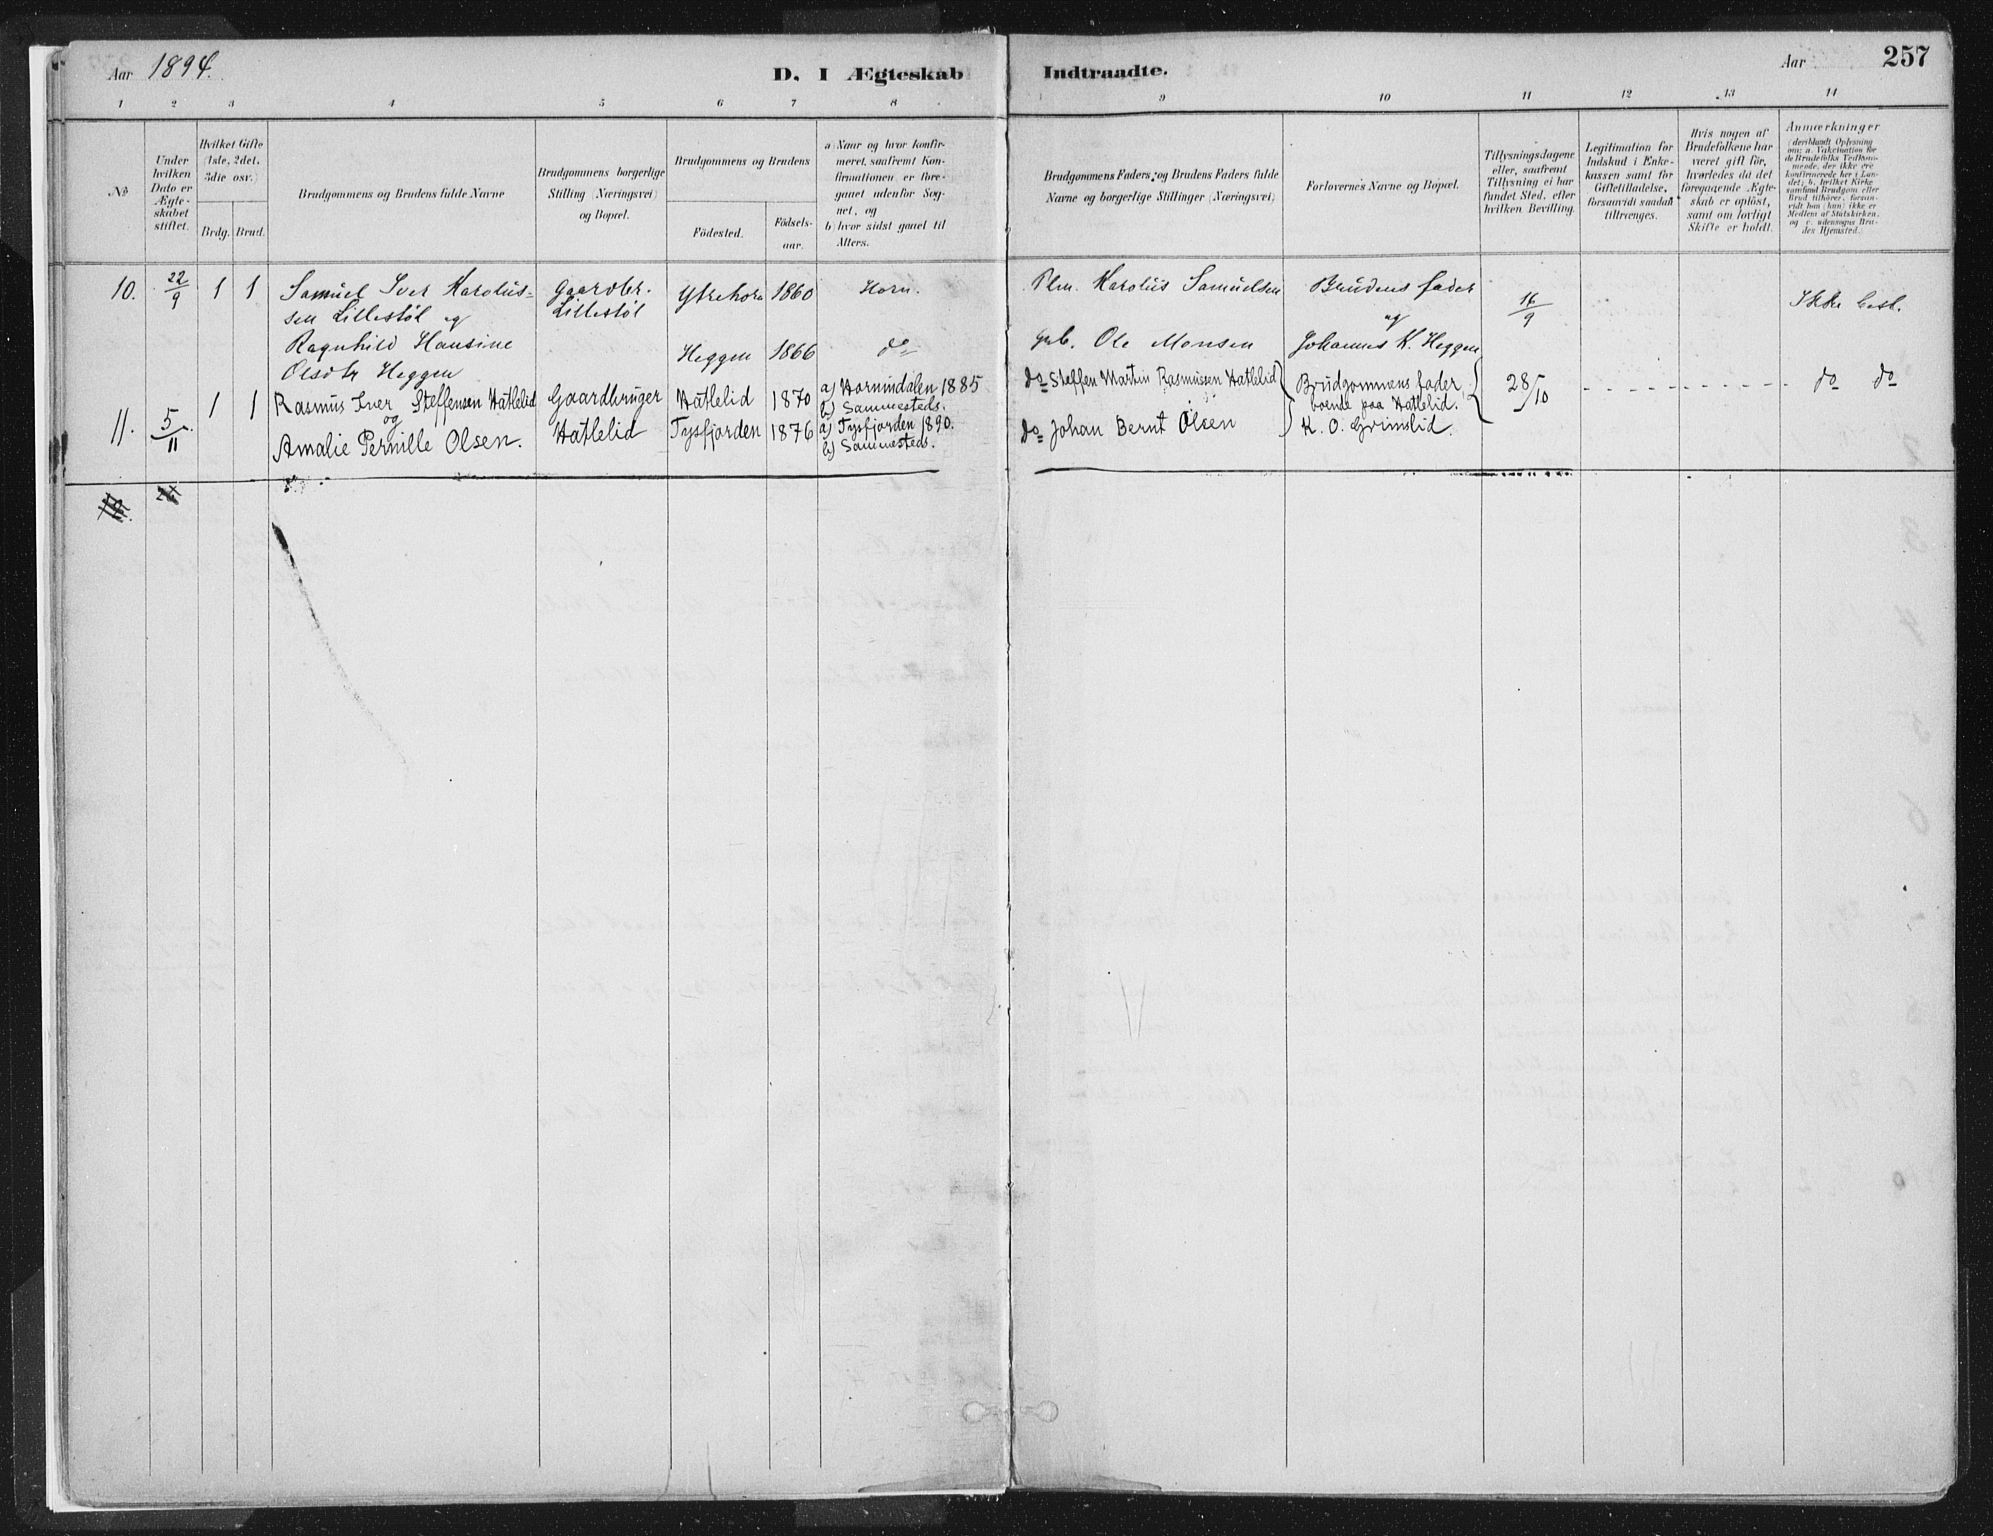 Aar 1894.
D. I Ægteskab Indtraadte.
Aar 257
1 2 3 4 5 6 7 8 9 10 11 12 13 14
No
Under hvilken Dato er Ægteskabet stiftet.
Hvilket Gifte (1ste, 2det, 3die osv.)
Brdg. Brud.
Brudgommens og Brudens fulde Navne
Brudgommens borgerlige Stilling (Næringsvei) og Bopæl.
Brudgommens og Brudens
Födested.
Födselsaar.
a) Naar og hvor konfirmeret, saafremt Konfirmationen er foregaaet udenfor Sognet, og
b) hvor sidst gaaet til Alters.
Brudgommens Faders og Brudens Faders fulde Navne og borgerlige Stillinger (Næringsvei)
Forlovernes Navne og Bopæl.
Tillysningsdagene eller, saafremt Tillysning ei har fundet Sted, efter hvilken Bevilling.
Legitimation for Indskud i Enkekassen samt for Giftetilladelse, forsaavidt saadan tiltrænges.
Hvis nogen af Brudefolkene har været gift för, hvorledes da det foregaaende Ægteskab er oplöst, samt om lovligt Skifte er holdt.
Anmærkninger (deriblandt Oplysning om: a. Vakcination for de Brudefolks Vedkommende, der ikke ere konfirmerede her i Landet; b. hvilket Kirkesamfund Brudgom eller Brud tilhörer, forsaavidt han (hun) ikke er Medlem af Statskirken, og c. udensogns Brudens Hjemsted.)
10. 22/9 1 1 Samuel Iver Karolus- Gaardbr. Ytrehorn 1860 Horn. Karolus Samuelsen Brudens fader 16/9 Ikke besl.
sen Lillestöl og Lillestöl og
Ragnhild Hansine Heggen 1866 do Ole Monsen Johannes K. Heggen
Olsdtr Heggen
11. 5/11 1 1 Rasmus Iver Steffensen Hatlelid Gaardbruger Hatlelid 1870 a) Hornindalen 1885 do Steffen Martin Rasmussen Hatlelid Brudgommens fader 28/10 do do
og b) Sammesteds. boende paa Hatlelid.
Amalie Pernille Olsen. Hatlelid Tysfjorden 1876 a) Tysfjorden 1890. do Johan Bernt Olsen K. O. Grimslid.
b) Sammesteds.